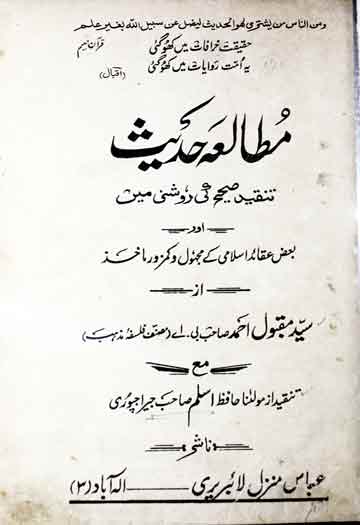 ومن الناس من یشتری لھو الحدیث لیضل عن سبیل اللہ بغیر علم
قرآن حکیم
حقیقت خرافات میں کھو گئی
یہ اُمت روایات میں کھو گئی
(اقبال)
مُطالعہ حَدیث
تنقید صحیح کی روشنی میں
اور
بعض عقائد اسلامی کے مجہول و کمزور ماخذ
از
سیّد مقبول احمد صاحب بی۔ اے (مصنف فلسفۂ مذہب)
مع
تنقید از مولٰنا حافظ اسلم صاحب جیراجپوری
ناشر
عباس منزل لائبریری الہ آباد (۳)